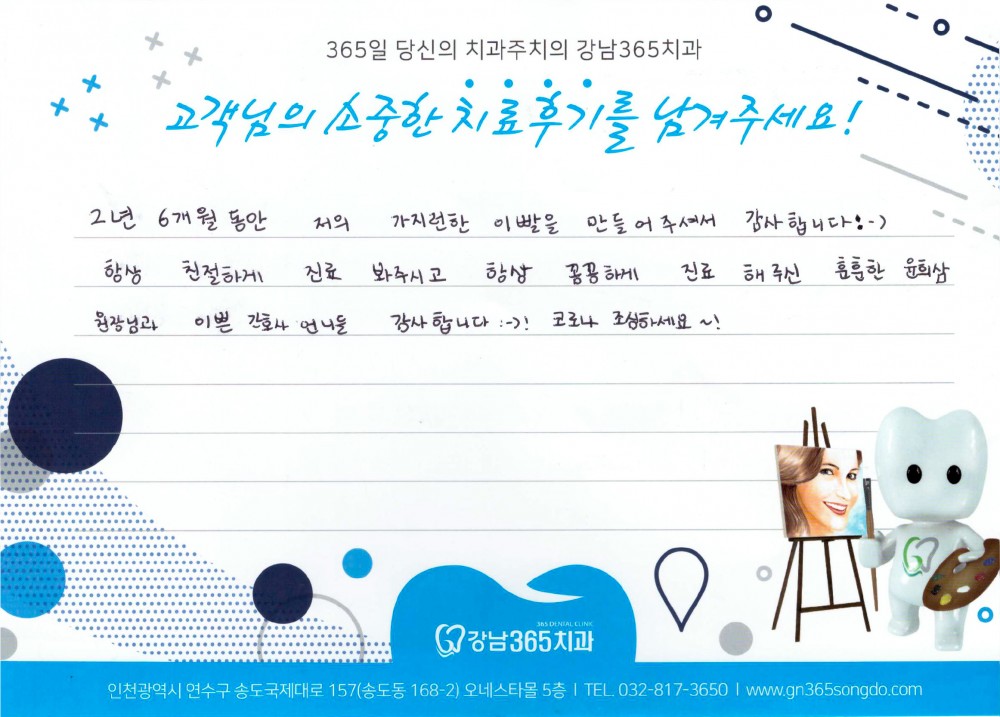 365일 당신의 치과주치의 강남365치과
고객님의 소중한 치료후기를 남겨주세요!
2년 6개월 동안 저의 가지런한 이빨을 만들어 주셔서 감사합니다!:-)
항상 친절하게 진료 봐주시고 항상 꼼꼼하게 진료 해주신 훈훈한 윤희삼
원장님과 이쁜 간호사 언니들 감사합니다 :->! 코로나 조심하세요 ~!
365 DENTAL CLINIC
강남365치과
인천광역시 연수구 송도국제대로 157(송도동 168-2) 오네스타몰 5층 | TEL. 032-817-3650 | www.gn365songdo.com